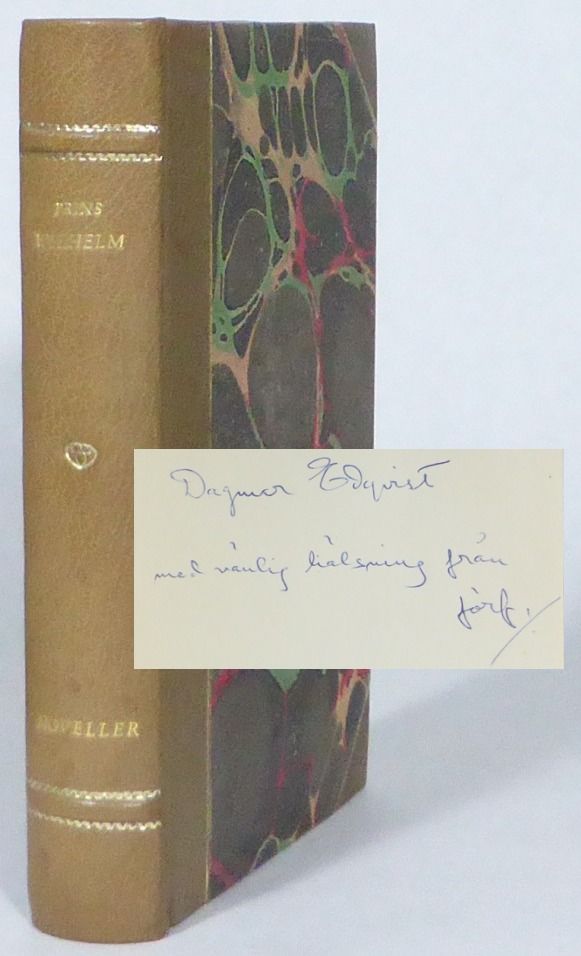 PRINS
WILHELM
NOVELLER
Dagmar Edqvist
med vänlig hälsning från
förf.